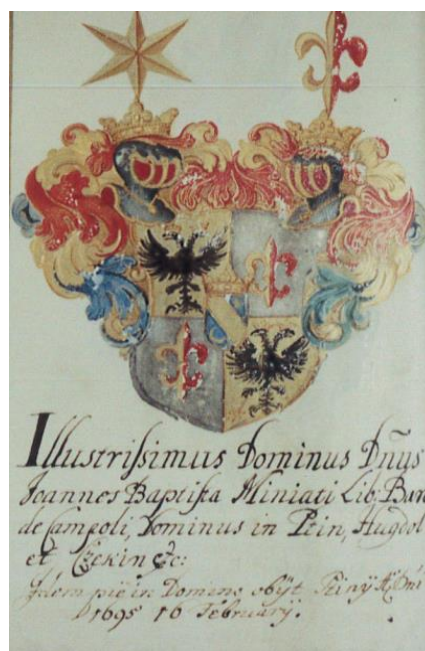 Illustrissimus Dominus Dn̄us
Joannes Baptista Miniati Lib. Bar
de Campoli, Dominus in Ptin, Hugdol
et Czekin &c:
Idem pie in Domino obijt Ptinÿ A. Dni
1695 16 February.